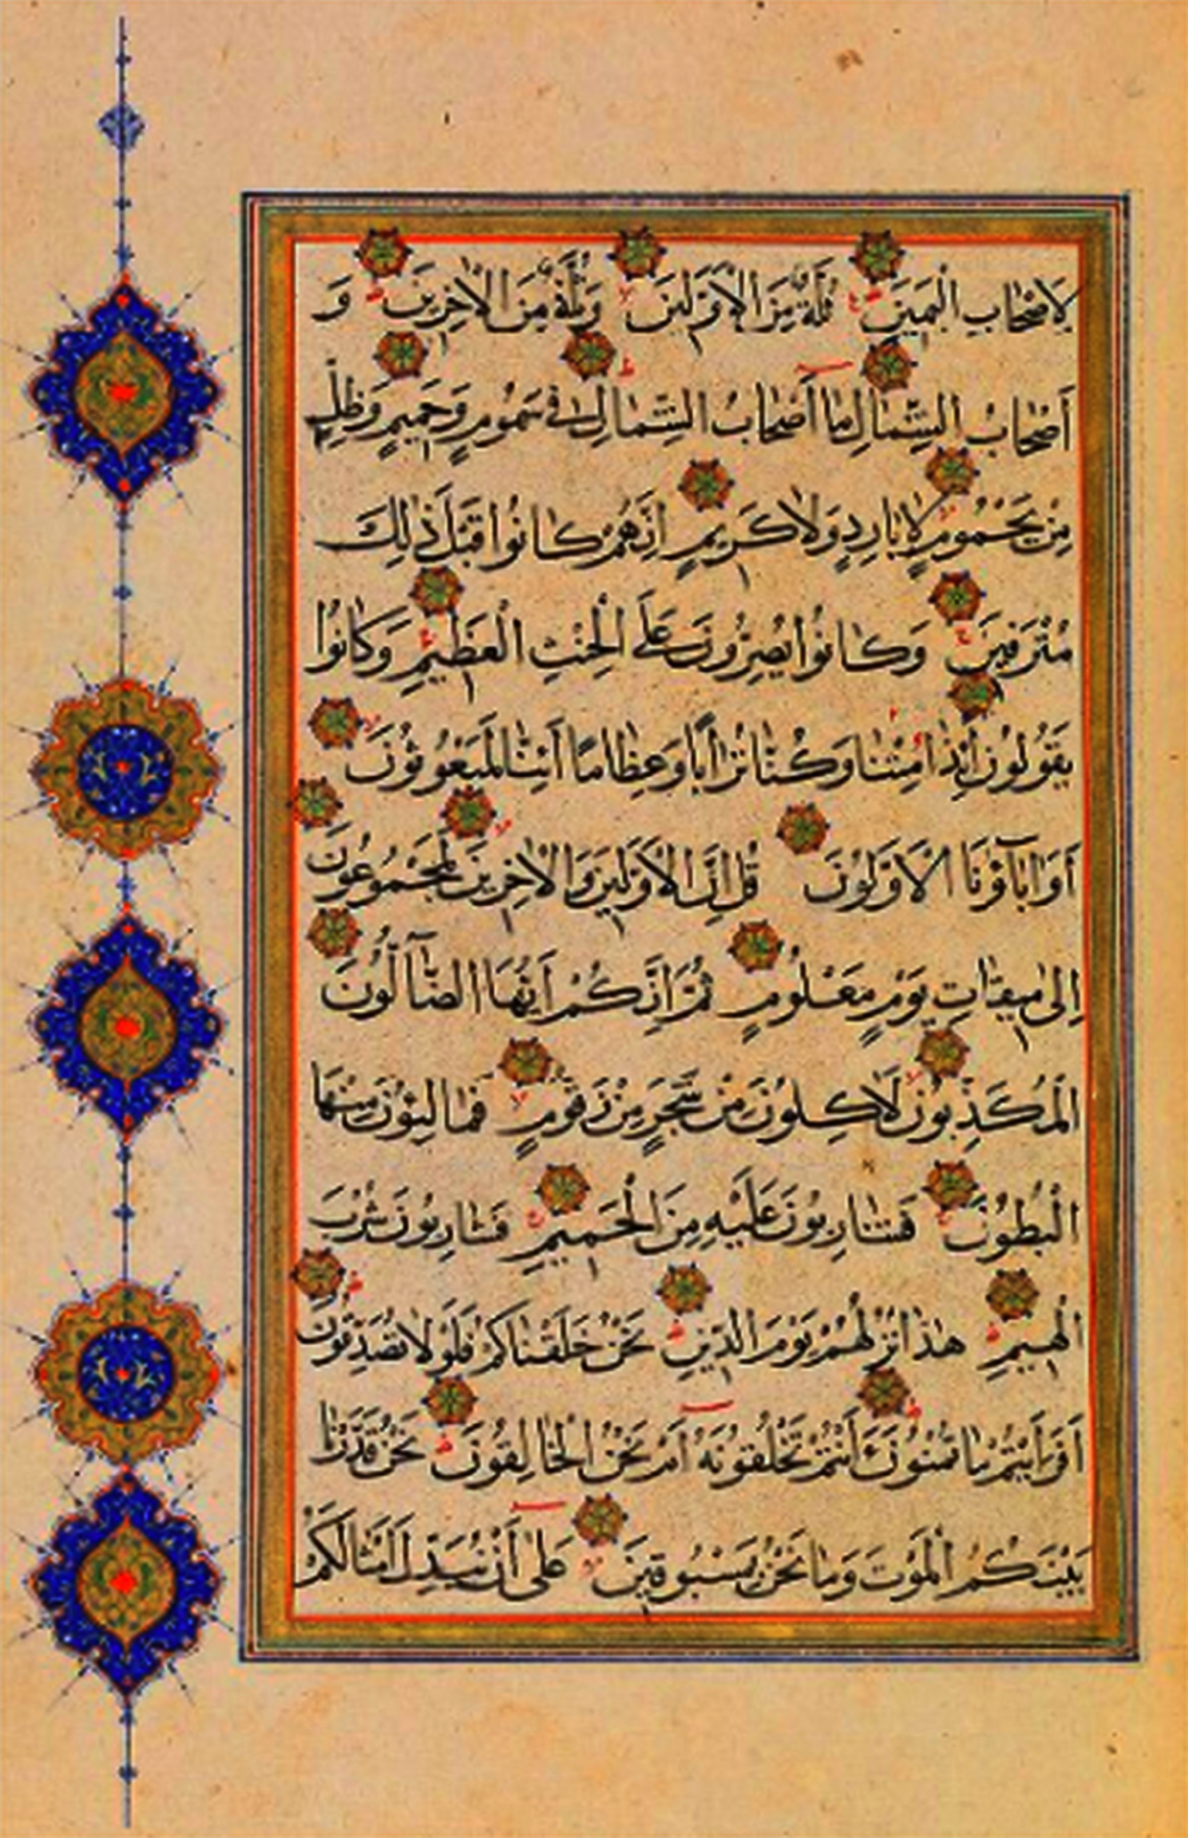 لِاَصْحَابِ الْيَمِينِ ثُلَّةٌ مِنَ الْاَوَّلِينَ وَثُلَّةٌ مِنَ الْاٰخِرِينَ وَ
اَصْحَابُ الشِّمَالِ مَا اَصْحَابُ الشِّمَالِ فِي سَمُومٍ وَحَمِيمٍ وَظِلٍّ
مِنْ يَحْمُومٍ لَا بَارِدٍ وَلَا كَرِيمٍ اِنَّهُمْ كَانُوا قَبْلَ ذٰلِكَ
مُتْرَفِينَ وَكَانُوا يُصِرُّونَ عَلَى الْحِنْثِ الْعَظِيمِ وَكَانُوا
يَقُولُونَ اَئِذَا مِتْنَا وَكُنَّا تُرَابًا وَعِظَامًا اَئِنَّا لَمَبْعُوثُونَ
اَوَاٰبَآؤُنَا الْاَوَّلُونَ قُلْ اِنَّ الْاَوَّلِينَ وَالْاٰخِرِينَ لَمَجْمُوعُونَ
اِلٰى مِيقَاتِ يَوْمٍ مَعْلُومٍ ثُمَّ اِنَّكُمْ اَيُّهَا الضَّآلُّونَ
الْمُكَذِّبُونَ لَاٰكِلُونَ مِنْ شَجَرٍ مِنْ زَقُّومٍ فَمَالِئُونَ مِنْهَا
الْبُطُونَ فَشَارِبُونَ عَلَيْهِ مِنَ الْحَمِيمِ فَشَارِبُونَ شُرْبَ
الْهِيمِ هٰذَا نُزُلُهُمْ يَوْمَ الدِّينِ نَحْنُ خَلَقْنَاكُمْ فَلَوْلَا تُصَدِّقُونَ
اَفَرَاَيْتُمْ مَا تُمْنُونَ ءَاَنْتُمْ تَخْلُقُونَهُ اَمْ نَحْنُ الْخَالِقُونَ نَحْنُ قَدَّرْنَا
بَيْنَكُمُ الْمَوْتَ وَمَا نَحْنُ بِمَسْبُوقِينَ عَلٰى اَنْ نُبَدِّلَ اَمْثَالَكُمْ